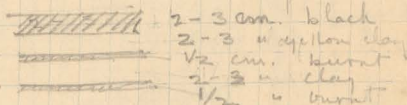 2 - 3 cm. black
2 - 3 " yellow clay
1/2 cm. burnt
2 - 3 " clay
1/2 " burnt